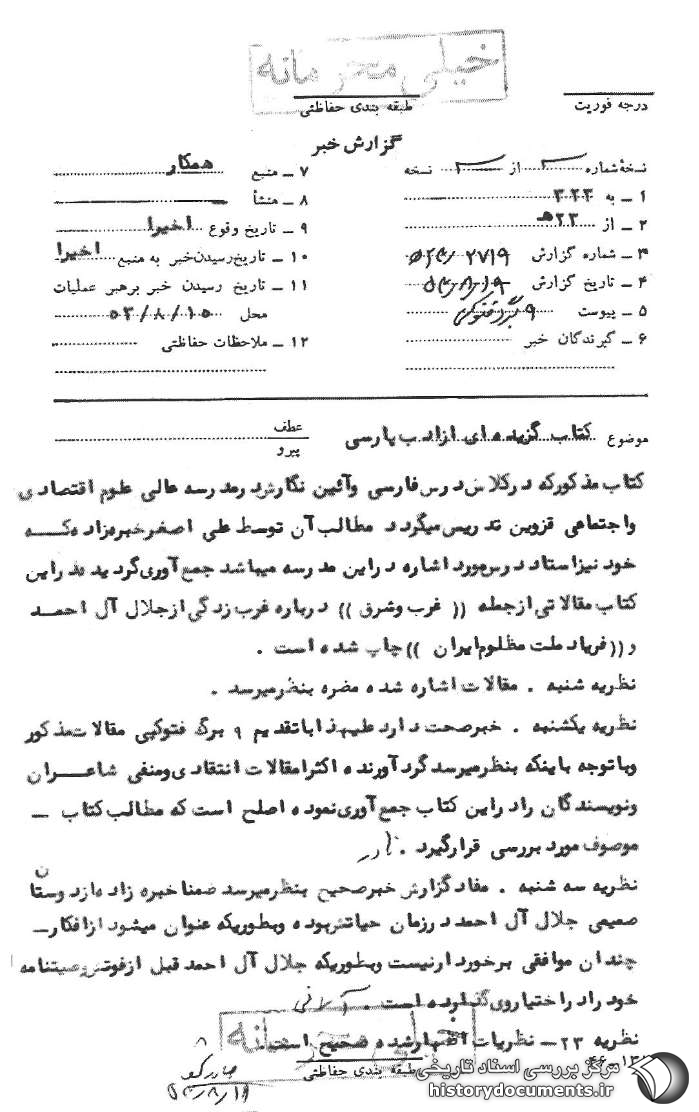 خیلی محرمانه
درجه فوریت
طبقه بندی حفاظتی
گزارش خبر
نسخهٔ شماره ۲ از ۲ نسخه
۱ ــ به ۳۲۳
۲ ــ از ۲۳ ه‍
۳ ــ شماره گزارش ۲۷۱۹
۴ ــ تاریخ گزارش
۵ ــ پیوست ۹ برگ فتوکپی
۶ ــ گیرندگان خبر
۷ ــ منبع همکار
۸ ــ منشأ
۹ ــ تاریخ وقوع اخیرا
۱۰ ــ تاریخ رسیدن خبر به منبع اخیرا
۱۱ ــ تاریخ رسیدن خبر برهبر عملیات
محل ۵۳/۸/۱۵
۱۲ ــ ملاحظات حفاظتی
موضوع کتاب گزیده ای از ادب پارسی
عطف
پیرو
کتاب مذکور که در کلاس درس فارسی وآئین نگارش در مدرسه عالی علوم اقتصادی
واجتماعی قزوین تدریس میگردد مطالب آن توسط علی اصغر خبره زاده که
خود نیز استاد درس مورد اشاره در این مدرسه میباشد جمع آوری گردیده در این
کتاب مقالاتی از جمله (( غرب وشرق )) درباره غرب زدگی از جلال آل احمد
و (( فریاد ملت مظلوم ایران )) چاپ شده است .
نظریه شنبه . مقالات اشاره شده مضره بنظر میرسد .
نظریه یکشنبه . خبر صحت دارد علیهذا باتقدیم ۹ برگ فتوکپی مقالات مذکور
وباتوجه باینکه بنظر میرسد گردآورنده اکثرا مقالات انتقادی ومنفی شاعران
ونویسندگان را در این کتاب جمع آوری نموده اصلح است که مطالب کتاب ــ
موصوف مورد بررسی قرار گیرد .
نظریه سه شنبه . مفاد گزارش خبر صحیح بنظر میرسد ضمنا خبره زاده از دوستان
صمیمی جلال آل احمد در زمان حیاتش بوده وبطوریکه عنوان میشود از افکار ــ
چندان موافقی برخوردار نیست وبطوریکه جلال آل احمد قبل از فوتش وصیتنامه
خود را در اختیار وی گذارده است .
نظریه ۲۳ ــ نظریات اظهار شده صحیح است .
خیلی محرمانه
طبقه بندی حفاظتی
مرکز بررسی اسناد تاریخی
historydocuments.ir